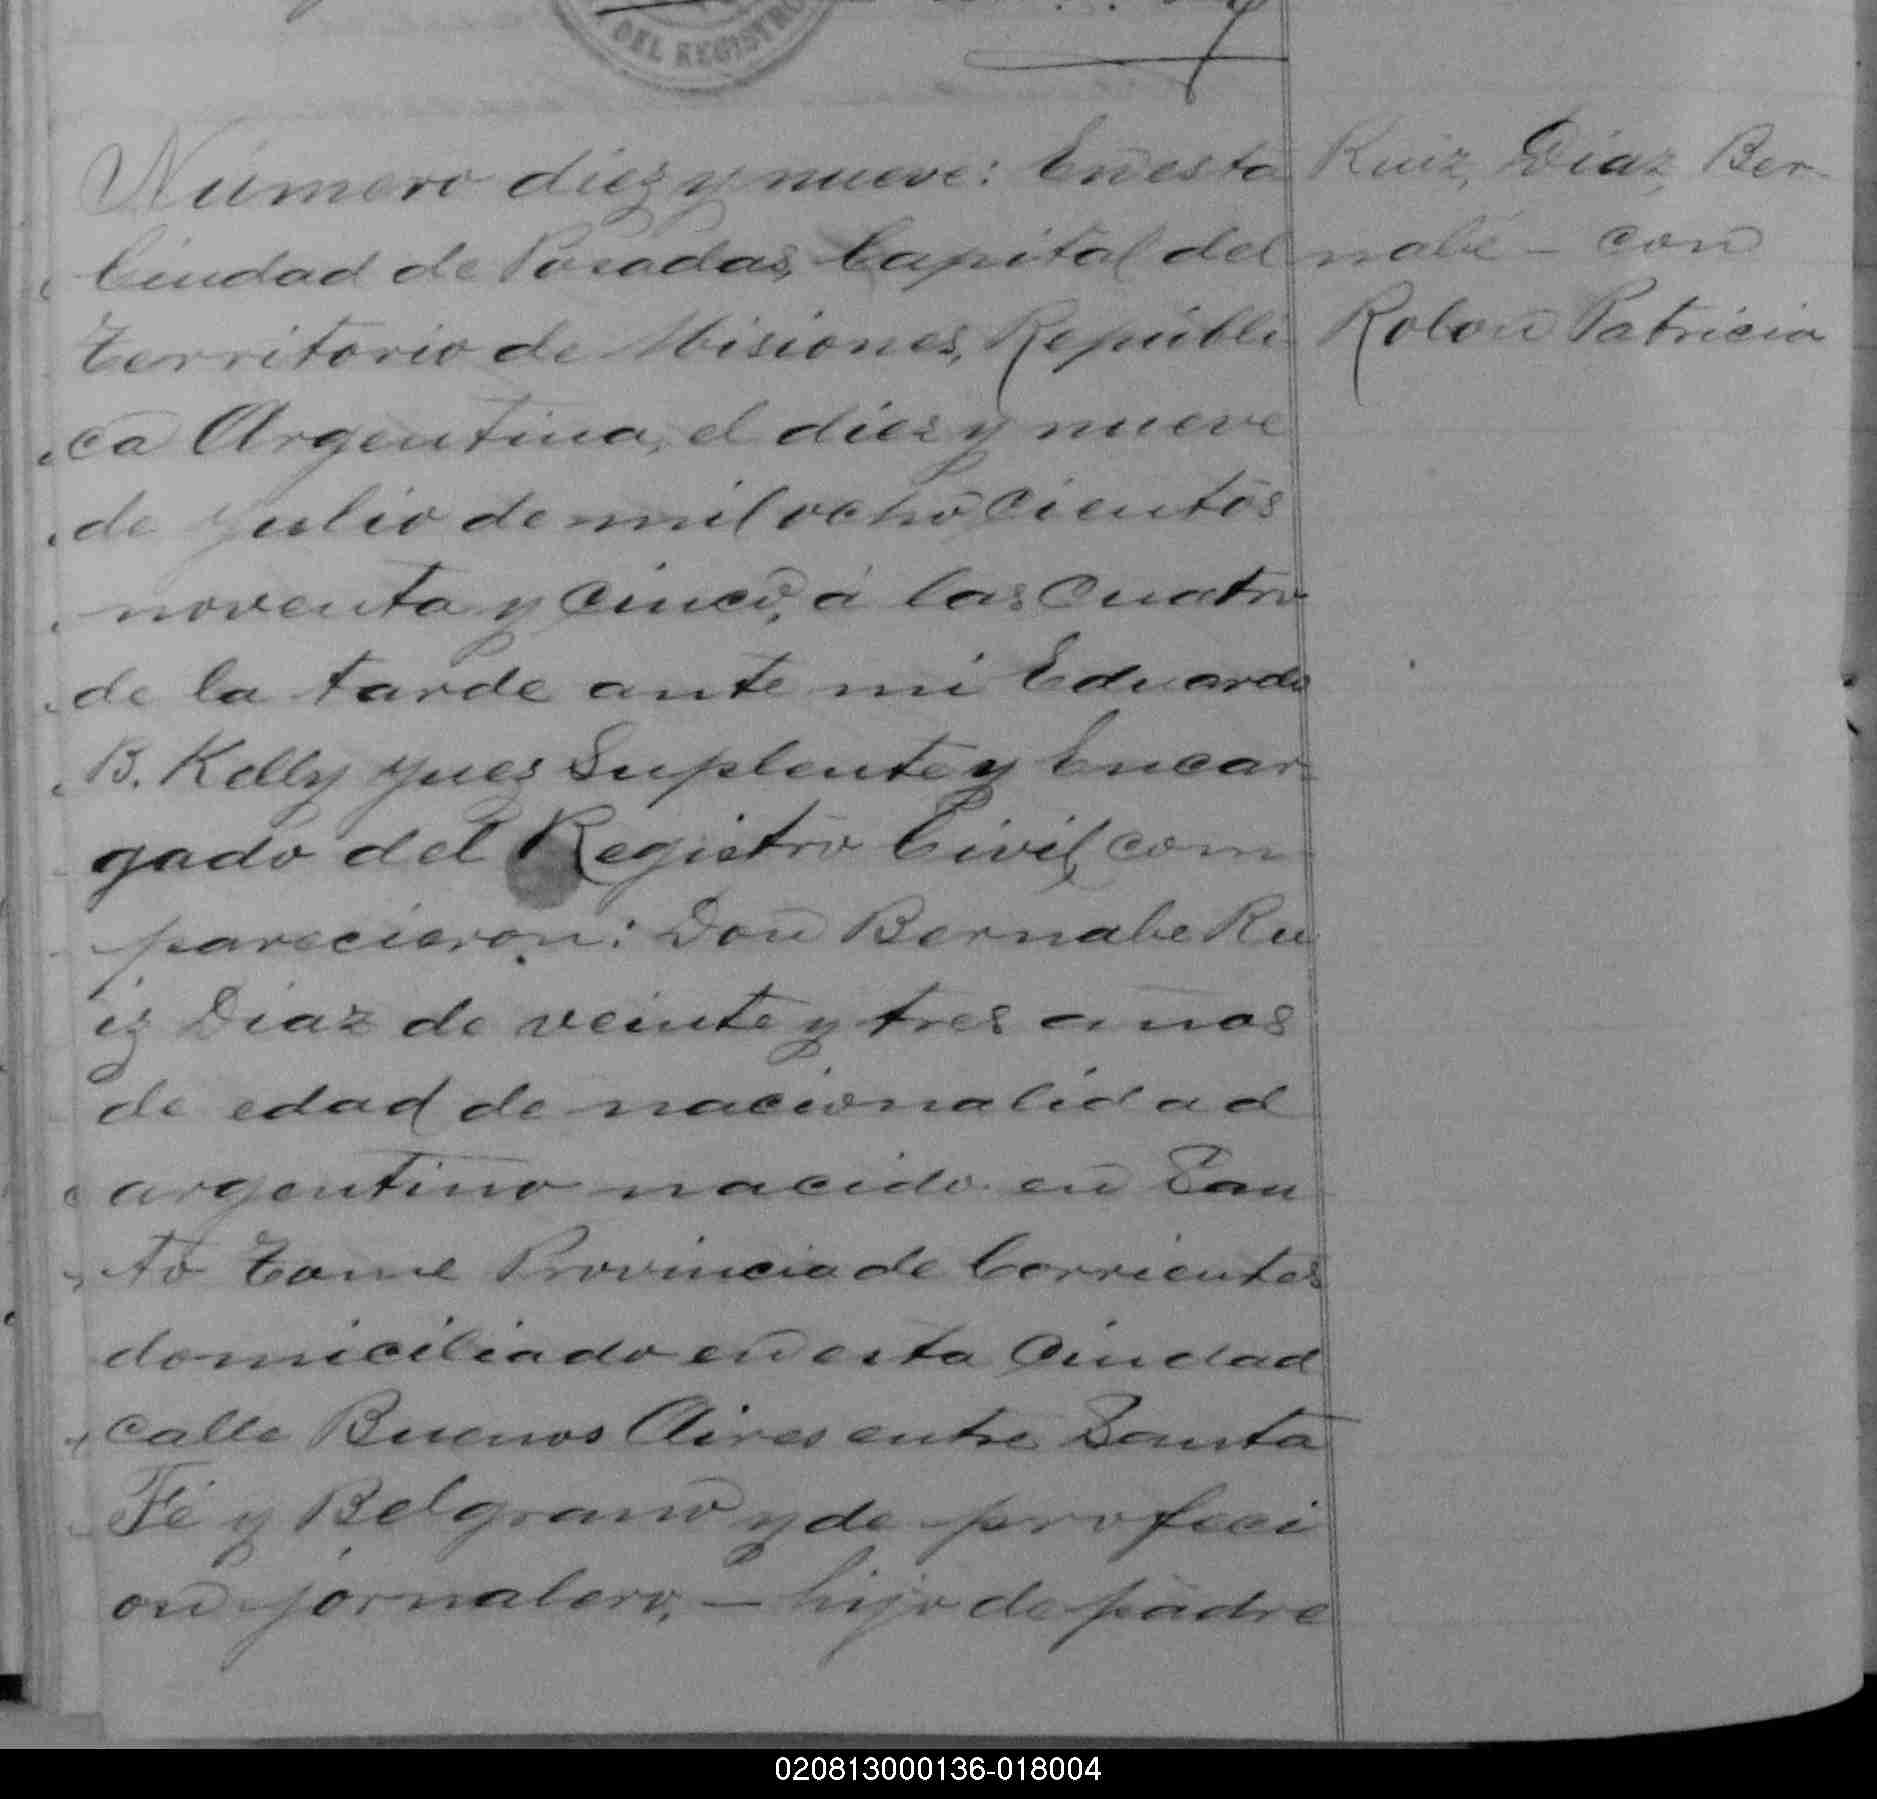 DEL REGISTRO
Número diez y nueve: En esta
Ciudad de Posadas, Capital del
Territorio de Misiones, Repúbli
ca Argentina, el diez y nueve
de Julio de mil ocho cientos
noventa y cinco, á las cuatro
de la tarde ante mi Eduardo
B. Kelly Juez Suplente y Encar-
gado del Registro Civil, com
parecieron: Don Bernabe Ru
iz Diaz de veinte y tres años
de edad de nacionalidad
argentino nacido en San
to Tome Provincia de Corrientes
domiciliado en esta Ciudad
calle Buenos Aires entre Santa
Fé y Belgrano y de profeci
on jornalero, — hijo de padre
Ruiz, Diaz, Ber-
nabé - con
Robon Patricia
020813000136-018004